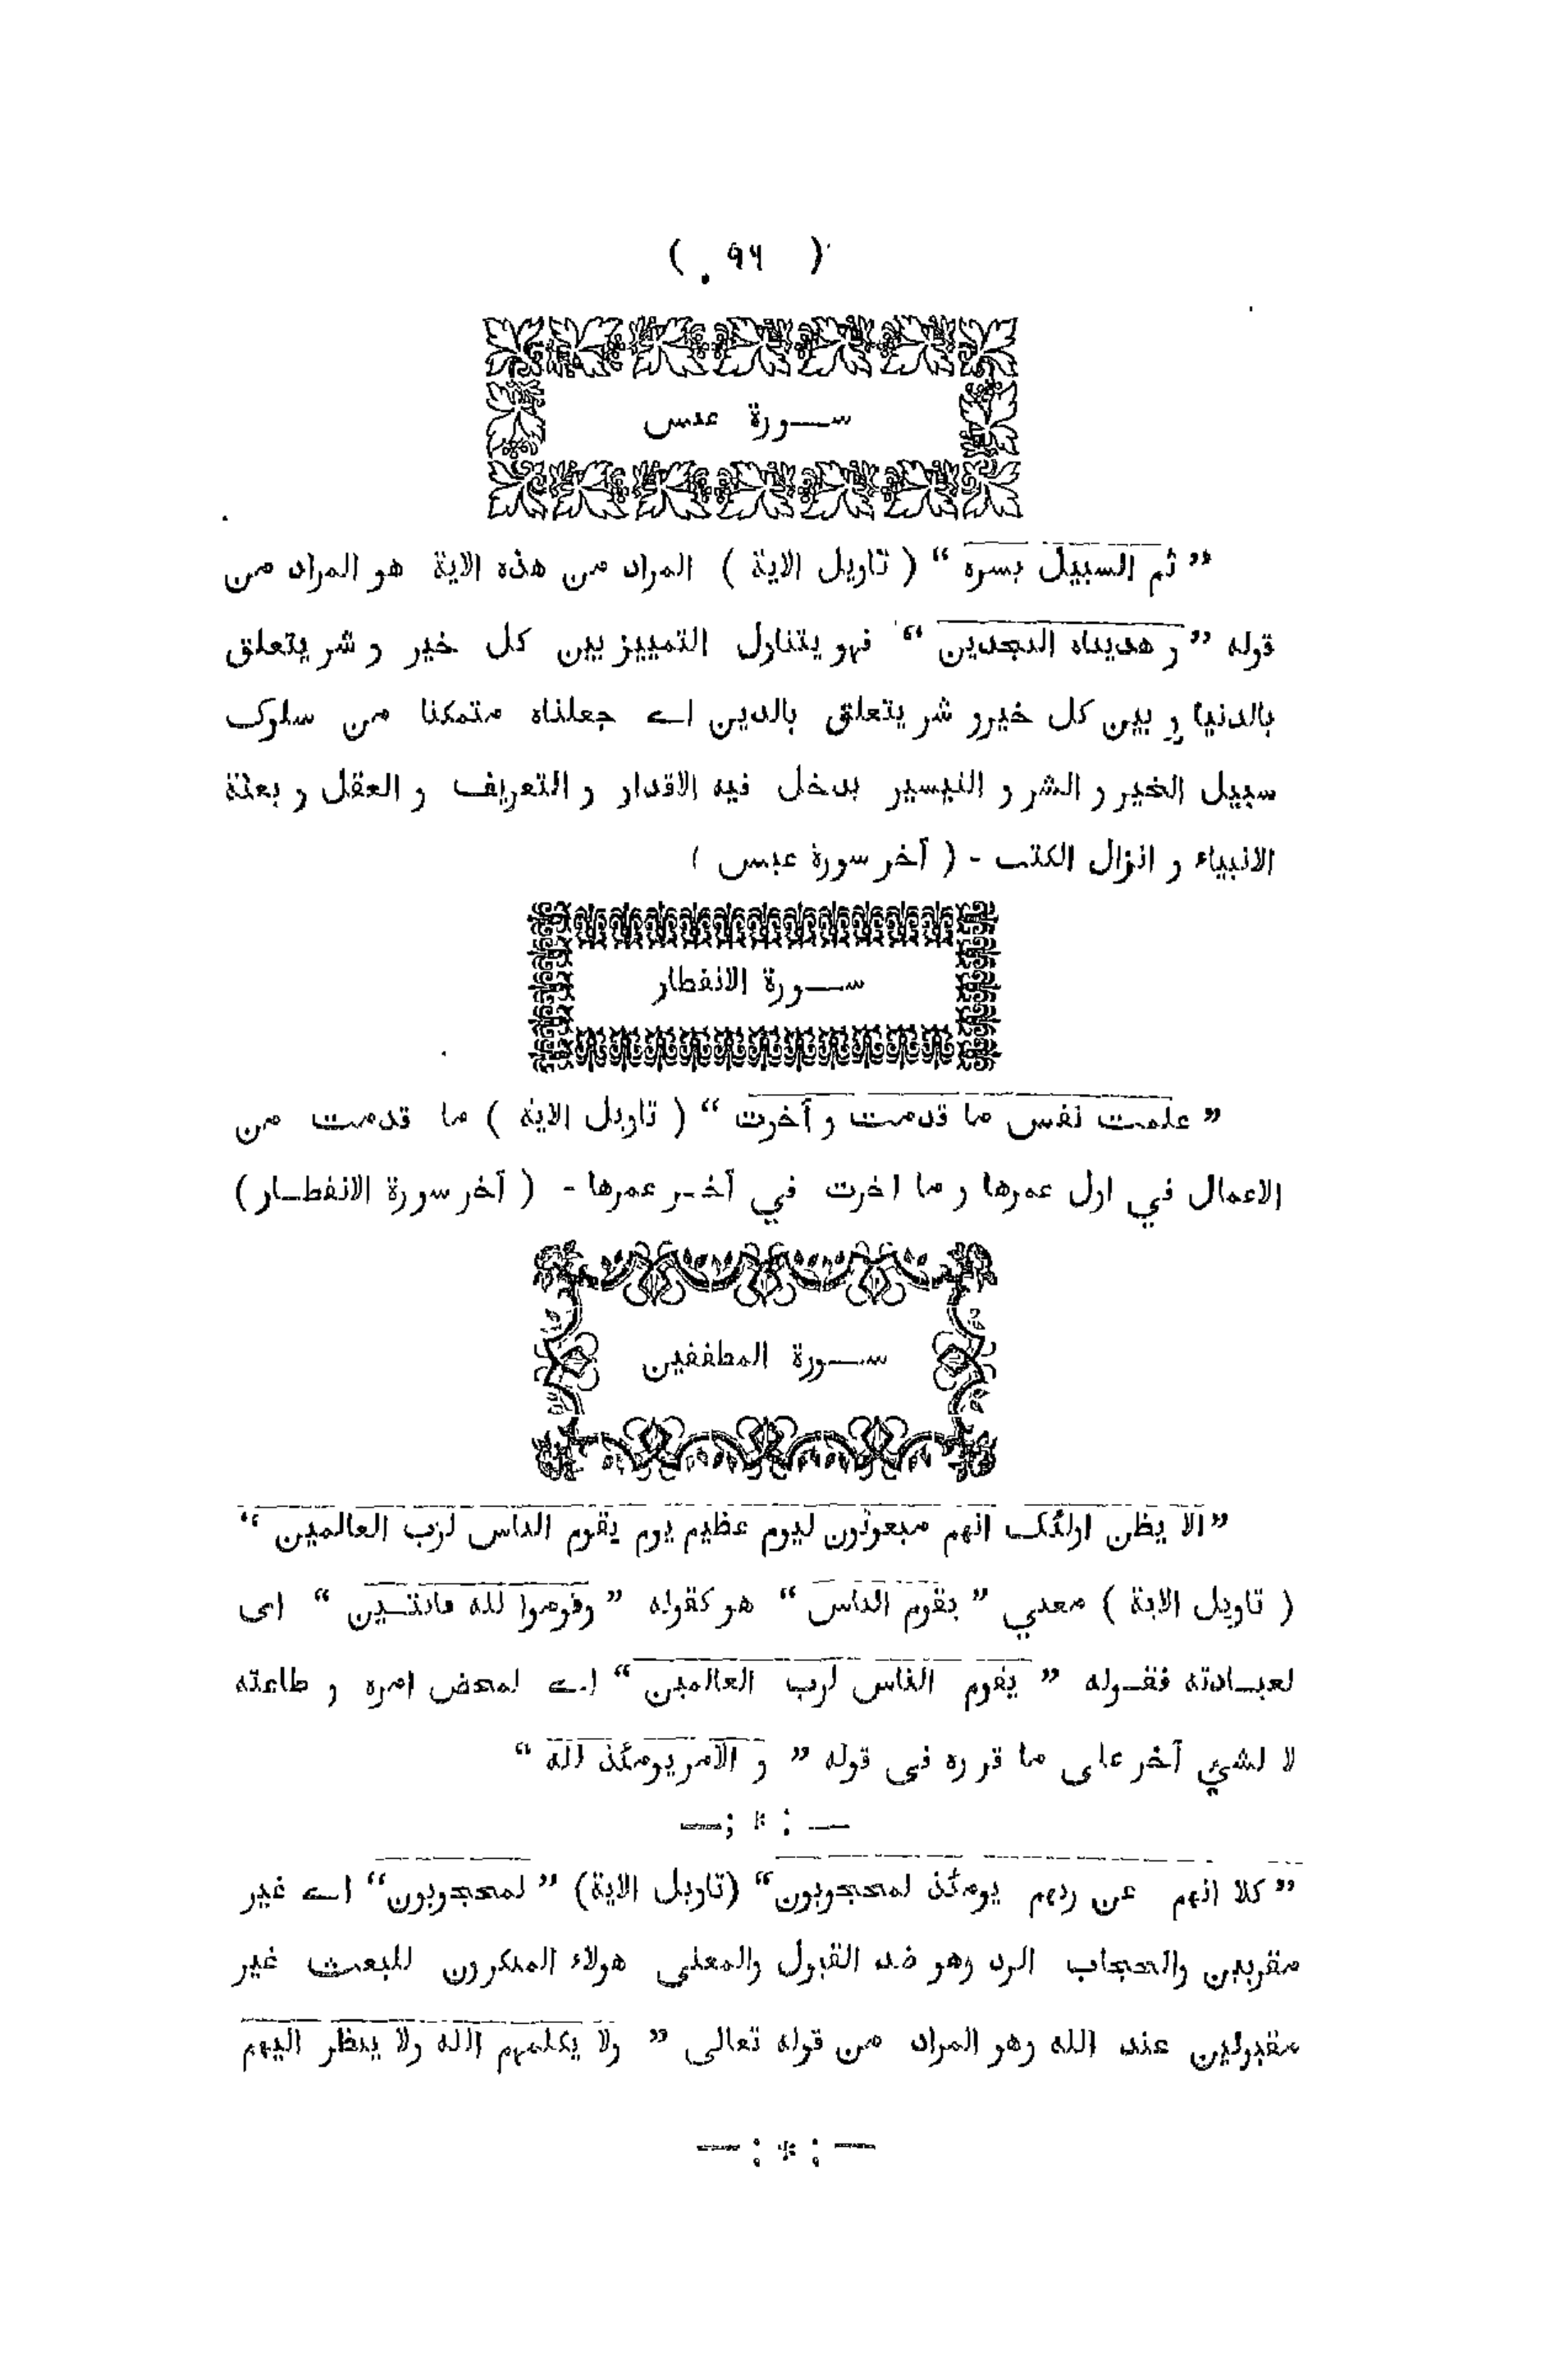 ( ٩٦ )
ســورة عبس
” ثم السبيل يسره “ ( تاويل الاية ) المراد من هذه الاية هو المراد من
قوله ” و هديناه النجدين “ فهو يتناول التمييز بين كل خير و شر يتعلق
بالدنيا و بين كل خيرو شر يتعلق بالدين اے جعلناه متمكنا من سلوک
سبيل الخير و الشر و التيسير يدخل فيه الاقدار و التعريف و العقل و بعثة
الانبياء و انزال الكتب - ( آخر سورة عبس )
ســورة الانفطار
” علمت نفس ما قدمت و آخرت “ ( تاويل الاية ) ما قدمت من
الاعمال في اول عمرها و ما اخرت في آخـر عمرها - ( آخر سورة الانفطـار )
ســورة المطففين
” الا يظن اولئک انهم مبعوثون ليوم عظيم يوم يقوم الناس لرب العالمين “
( تاويل الاية ) معني ” يقوم الناس “ هو كقوله ” وقوموا لله قانتـين “ اى
لعبـادته فقـوله ” يقوم الناس لرب العالمين “ اے لمحض امره و طاعته
لا لشي آخر على ما قر ره فى قوله ” و الامر يومئذ لله “
— : * ; —
” كلا انهم عن ربهم يومئذ لمحجوبون “ (تاويل الاية) ” لمحجوبون “ اے غير
مقربين والحجاب الرد وهو ضد القبول والمعنى هولاء المنكرون للبعث غير
مقبولين عند الله وهو المراد من قوله تعالى ” ولا يكلمهم الله ولا ينظر اليهم
— : * : —